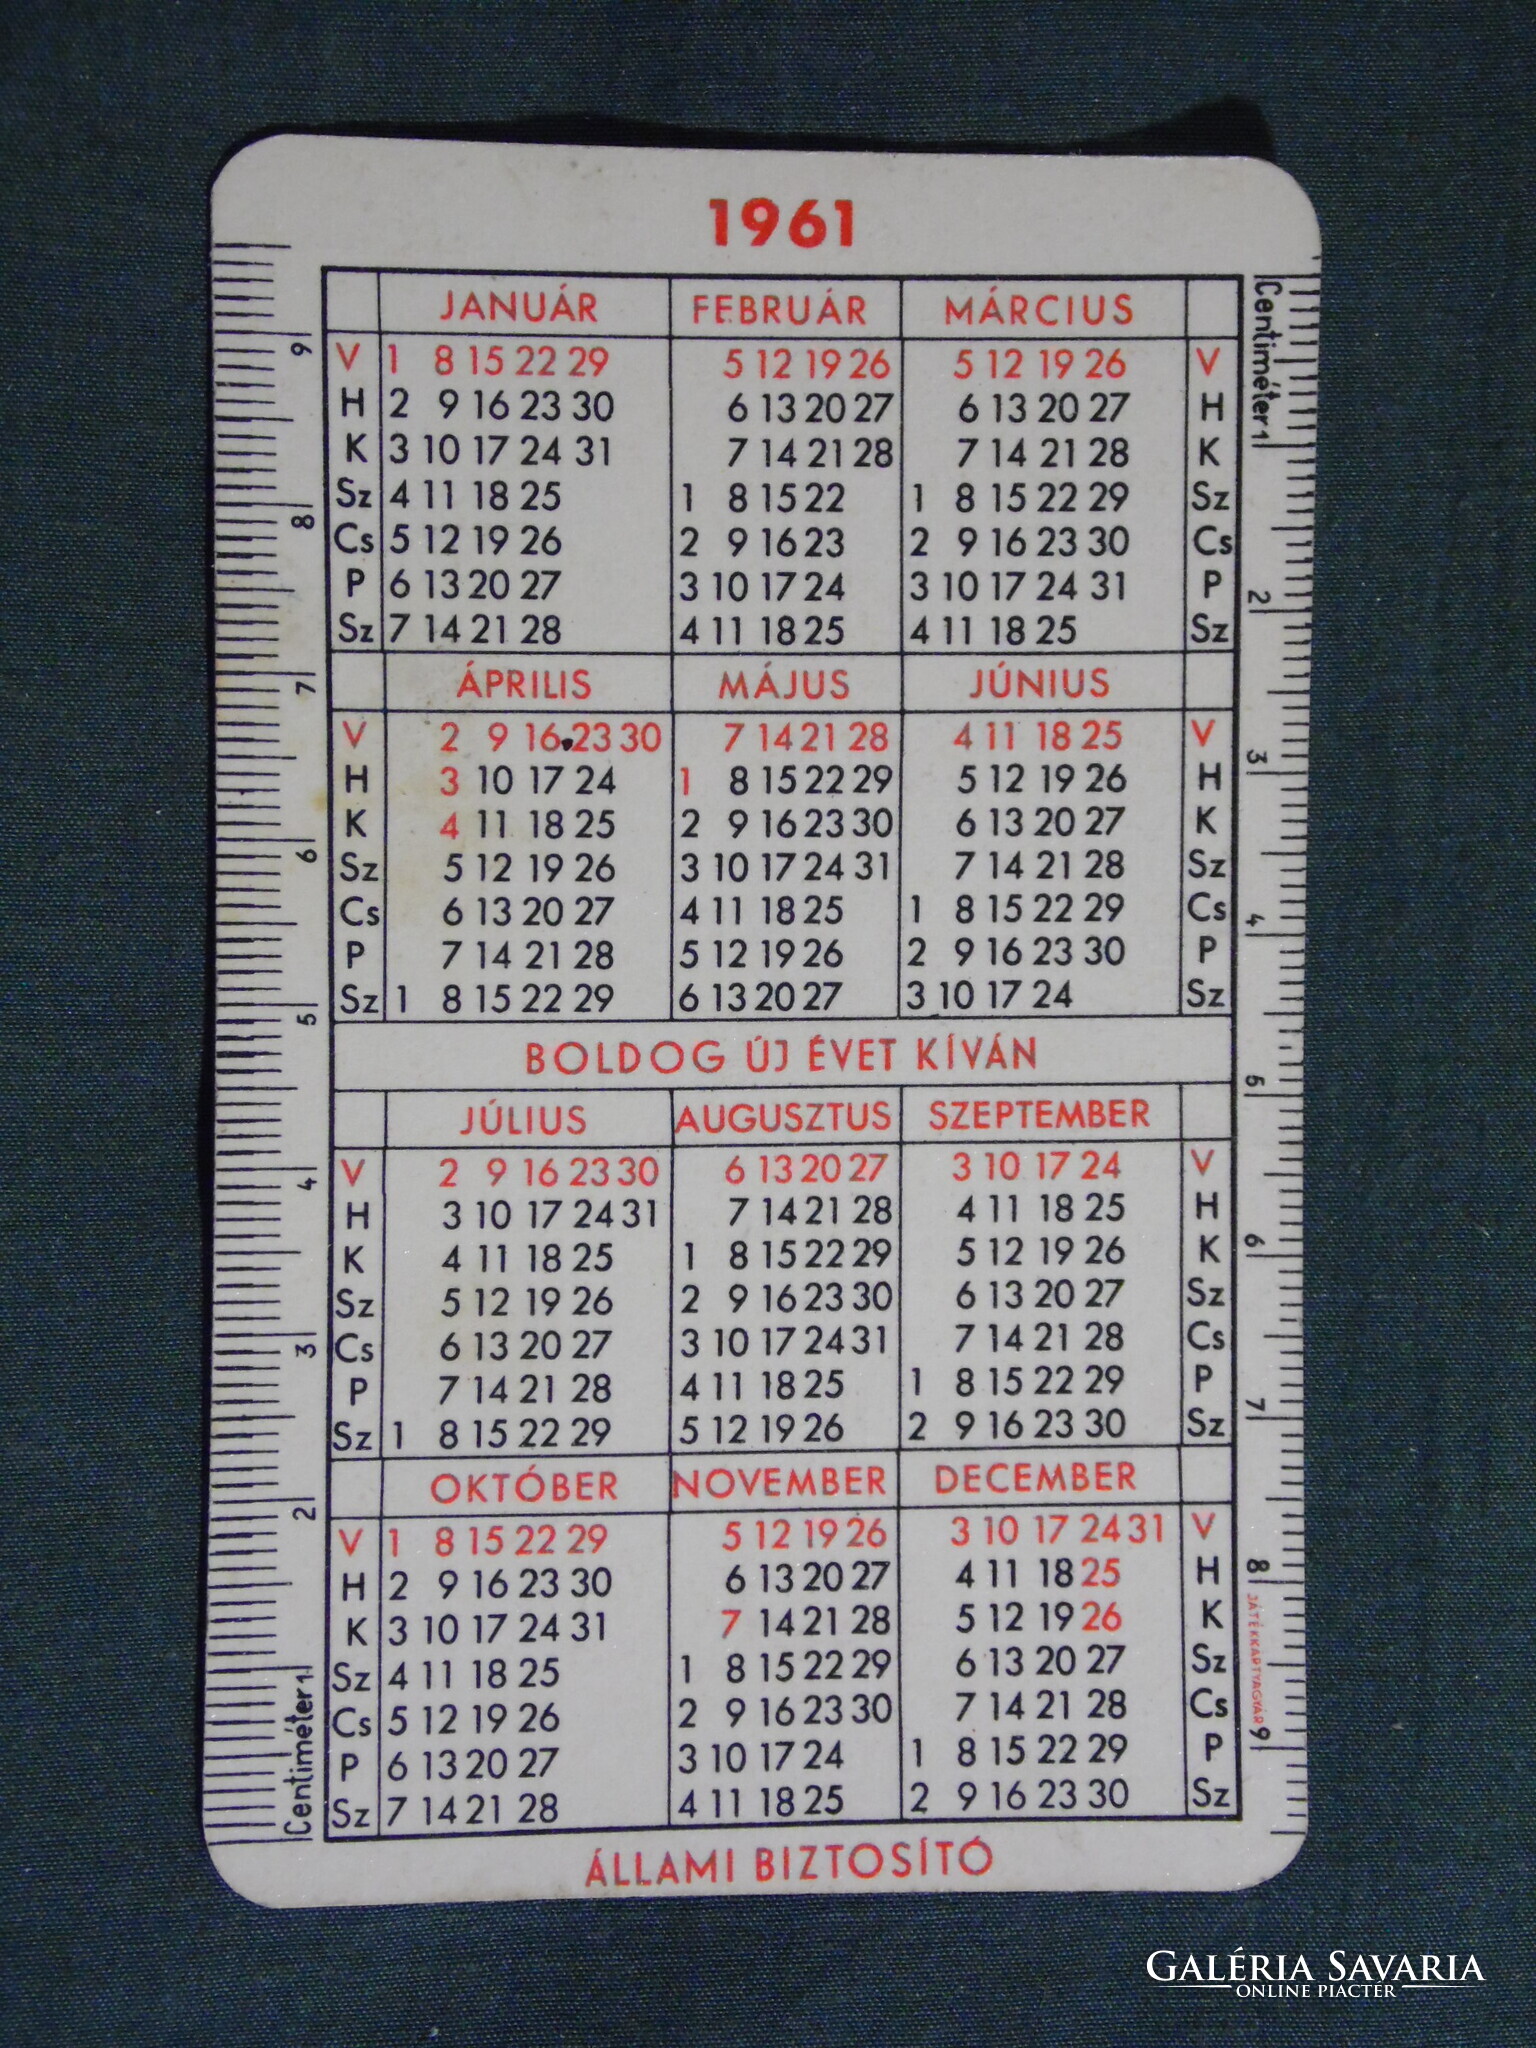 1961
JANUÁR FEBRUÁR MÁRCIUS
V 1 8 15 22 29 5 12 19 26 5 12 19 26 V
H 2 9 16 23 30 6 13 20 27 6 13 20 27 H
K 3 10 17 24 31 7 14 21 28 7 14 21 28 K
Sz 4 11 18 25 1 8 15 22 1 8 15 22 29 Sz
Cs 5 12 19 26 2 9 16 23 2 9 16 23 30 Cs
P 6 13 20 27 3 10 17 24 3 10 17 24 31 P
Sz 7 14 21 28 4 11 18 25 4 11 18 25 Sz
ÁPRILIS MÁJUS JÚNIUS
V 2 9 16 23 30 7 14 21 28 4 11 18 25 V
H 3 10 17 24 1 8 15 22 29 5 12 19 26 H
K 4 11 18 25 2 9 16 23 30 6 13 20 27 K
Sz 5 12 19 26 3 10 17 24 31 7 14 21 28 Sz
Cs 6 13 20 27 4 11 18 25 1 8 15 22 29 Cs
P 7 14 21 28 5 12 19 26 2 9 16 23 30 P
Sz 1 8 15 22 29 6 13 20 27 3 10 17 24 Sz
BOLDOG ÚJ ÉVET KÍVÁN
JÚLIUS AUGUSZTUS SZEPTEMBER
V 2 9 16 23 30 6 13 20 27 3 10 17 24 V
H 3 10 17 24 31 7 14 21 28 4 11 18 25 H
K 4 11 18 25 1 8 15 22 29 5 12 19 26 K
Sz 5 12 19 26 2 9 16 23 30 6 13 20 27 Sz
Cs 6 13 20 27 3 10 17 24 31 7 14 21 28 Cs
P 7 14 21 28 4 11 18 25 1 8 15 22 29 P
Sz 1 8 15 22 29 5 12 19 26 2 9 16 23 30 Sz
OKTÓBER NOVEMBER DECEMBER
V 1 8 15 22 29 5 12 19 26 3 10 17 24 31 V
H 2 9 16 23 30 6 13 20 27 4 11 18 25 H
K 3 10 17 24 31 7 14 21 28 5 12 19 26 K
Sz 4 11 18 25 1 8 15 22 29 6 13 20 27 Sz
Cs 5 12 19 26 2 9 16 23 30 7 14 21 28 Cs
P 6 13 20 27 3 10 17 24 1 8 15 22 29 P
Sz 7 14 21 28 4 11 18 25 2 9 16 23 30 Sz
ÁLLAMI BIZTOSÍTÓ
Centiméter 1 2 3 4 5 6 7 8 9
Centiméter 1 2 3 4 5 6 7 8 9
JÁTÉKKÁRTYAGYÁR
GALÉRIA SAVARIA
ONLINE PIACTÉR